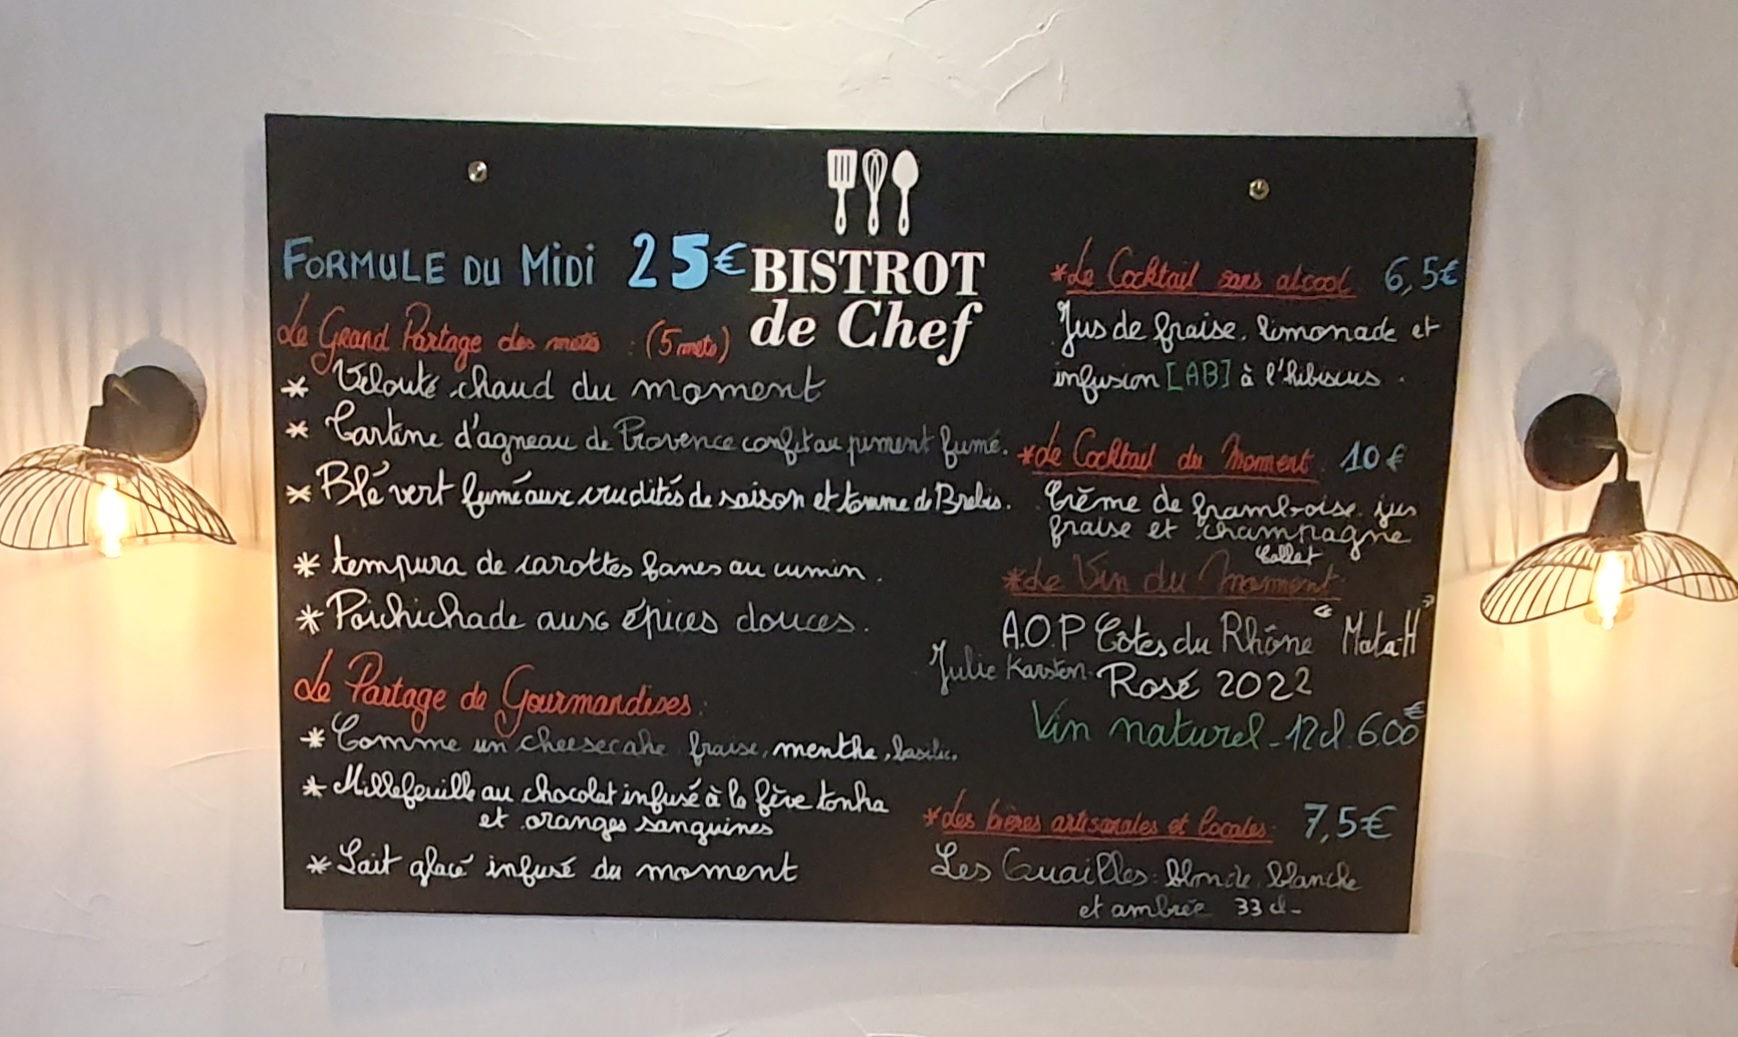 FORMULE DU MiDi 25€
BISTROT
de Chef
Le Grand Partage des mets : (5 mets)
* Velouté chaud du moment
* Tartine d'agneau de Provence confit au piment fumé.
* Blé vert fumé aux crudités de saison et tomme de Brebis.
* tempura de carottes fanes au cumin.
* Poichichade aux épices douces.
Le Partage de Gourmandises :
* Comme un cheesecake fraise, menthe, basilic.
* Millefeuille au chocolat infusé à la fève tonka
et oranges sanguines
* Lait glacé infusé du moment
*Le Cocktail sans alcool 6,5€
Jus de fraise, limonade et
infusion [AB] à l'hibiscus.
*Le Cocktail du Moment 10€
Crème de framboise jus
fraise et champagne
Collet
*Le Vin du Moment
A.O.P Côtes du Rhône "Mata-H"
Julie Karsten Rosé 2022
Vin naturel - 12cl 6.00€
*Les bières artisanales et locales. 7,5€
Les Cuailles : blonde, blanche
et ambrée 33cl-